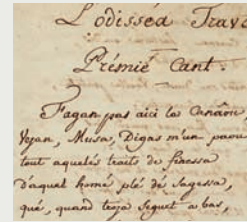 L'odisséa Trava
Prémié Cant.
Fagan pas aici la Canaïm,
Vejan, Musa, Digas m'un paou
tout aquelés traits de finessa
D'aquel homé plé de sagessa,
qué, quand teja seguet a bas,